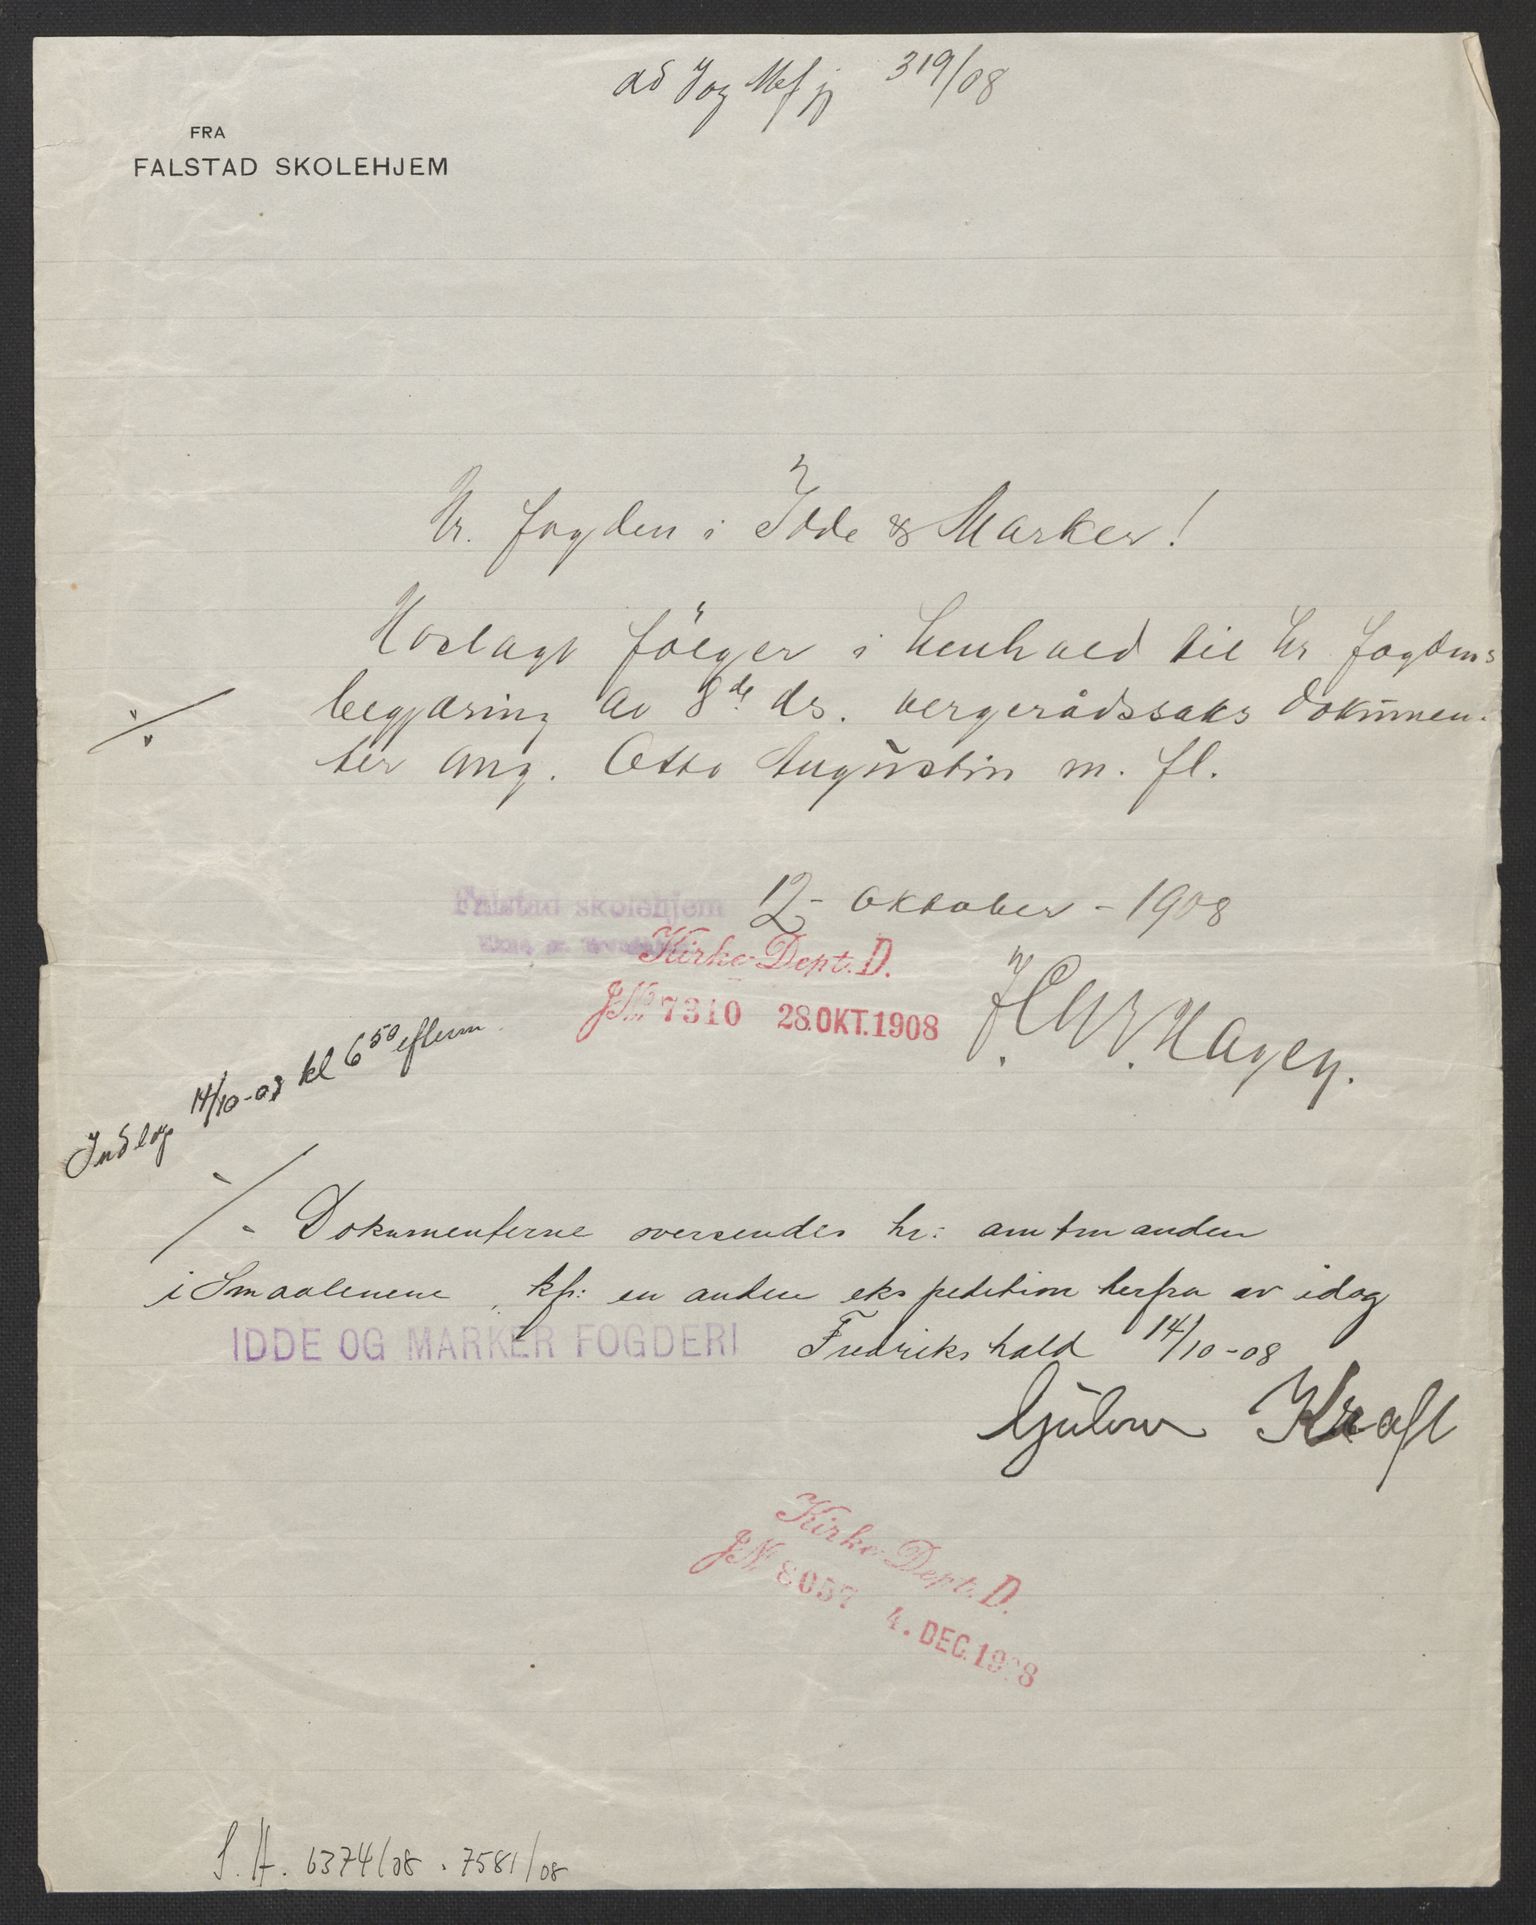 ad Jog 319/08
FRA
FALSTAD SKOLEHJEM
Hr. fogden i Idde & Marker!
Hoslagt følger i henhold til hr fogdens
begjæring av 8de ds. vergerådssaks dokumen-
ter ang. Otto Augustin m. fl.
Falstad skolehjem 12 - oktober - 1908
Kirke-Dept. D.
J.№ 7310 28.OKT.1908
Hagen.
Indlög 14/10-08 kl 6 50 efterm
Dokumenterne oversendes hr: amtmanden
i Smaalenene, kfr: en anden ekspedition herfra av idag
IDDE OG MARKER FOGDERI Fredrikshald 14/10-08
Kraft
Kirke-Dept. D.
J.№ 8057 4. DEC. 1908
S. H. 6374/08 . 7581/08